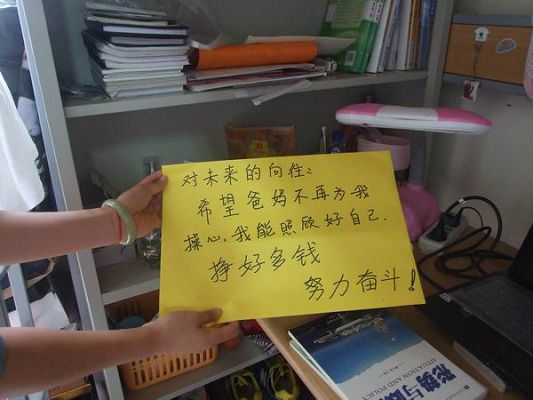 对未来的向往:
希望爸妈不再为我
操心,我能照顾好自己.
挣好多钱
努力奋斗!
形势与
SITUATION AND POLICY